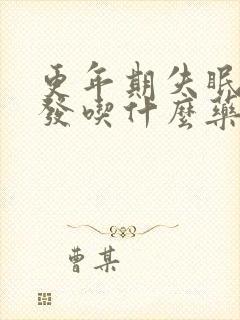 更年期失眠
發喫什麼藥
曹某